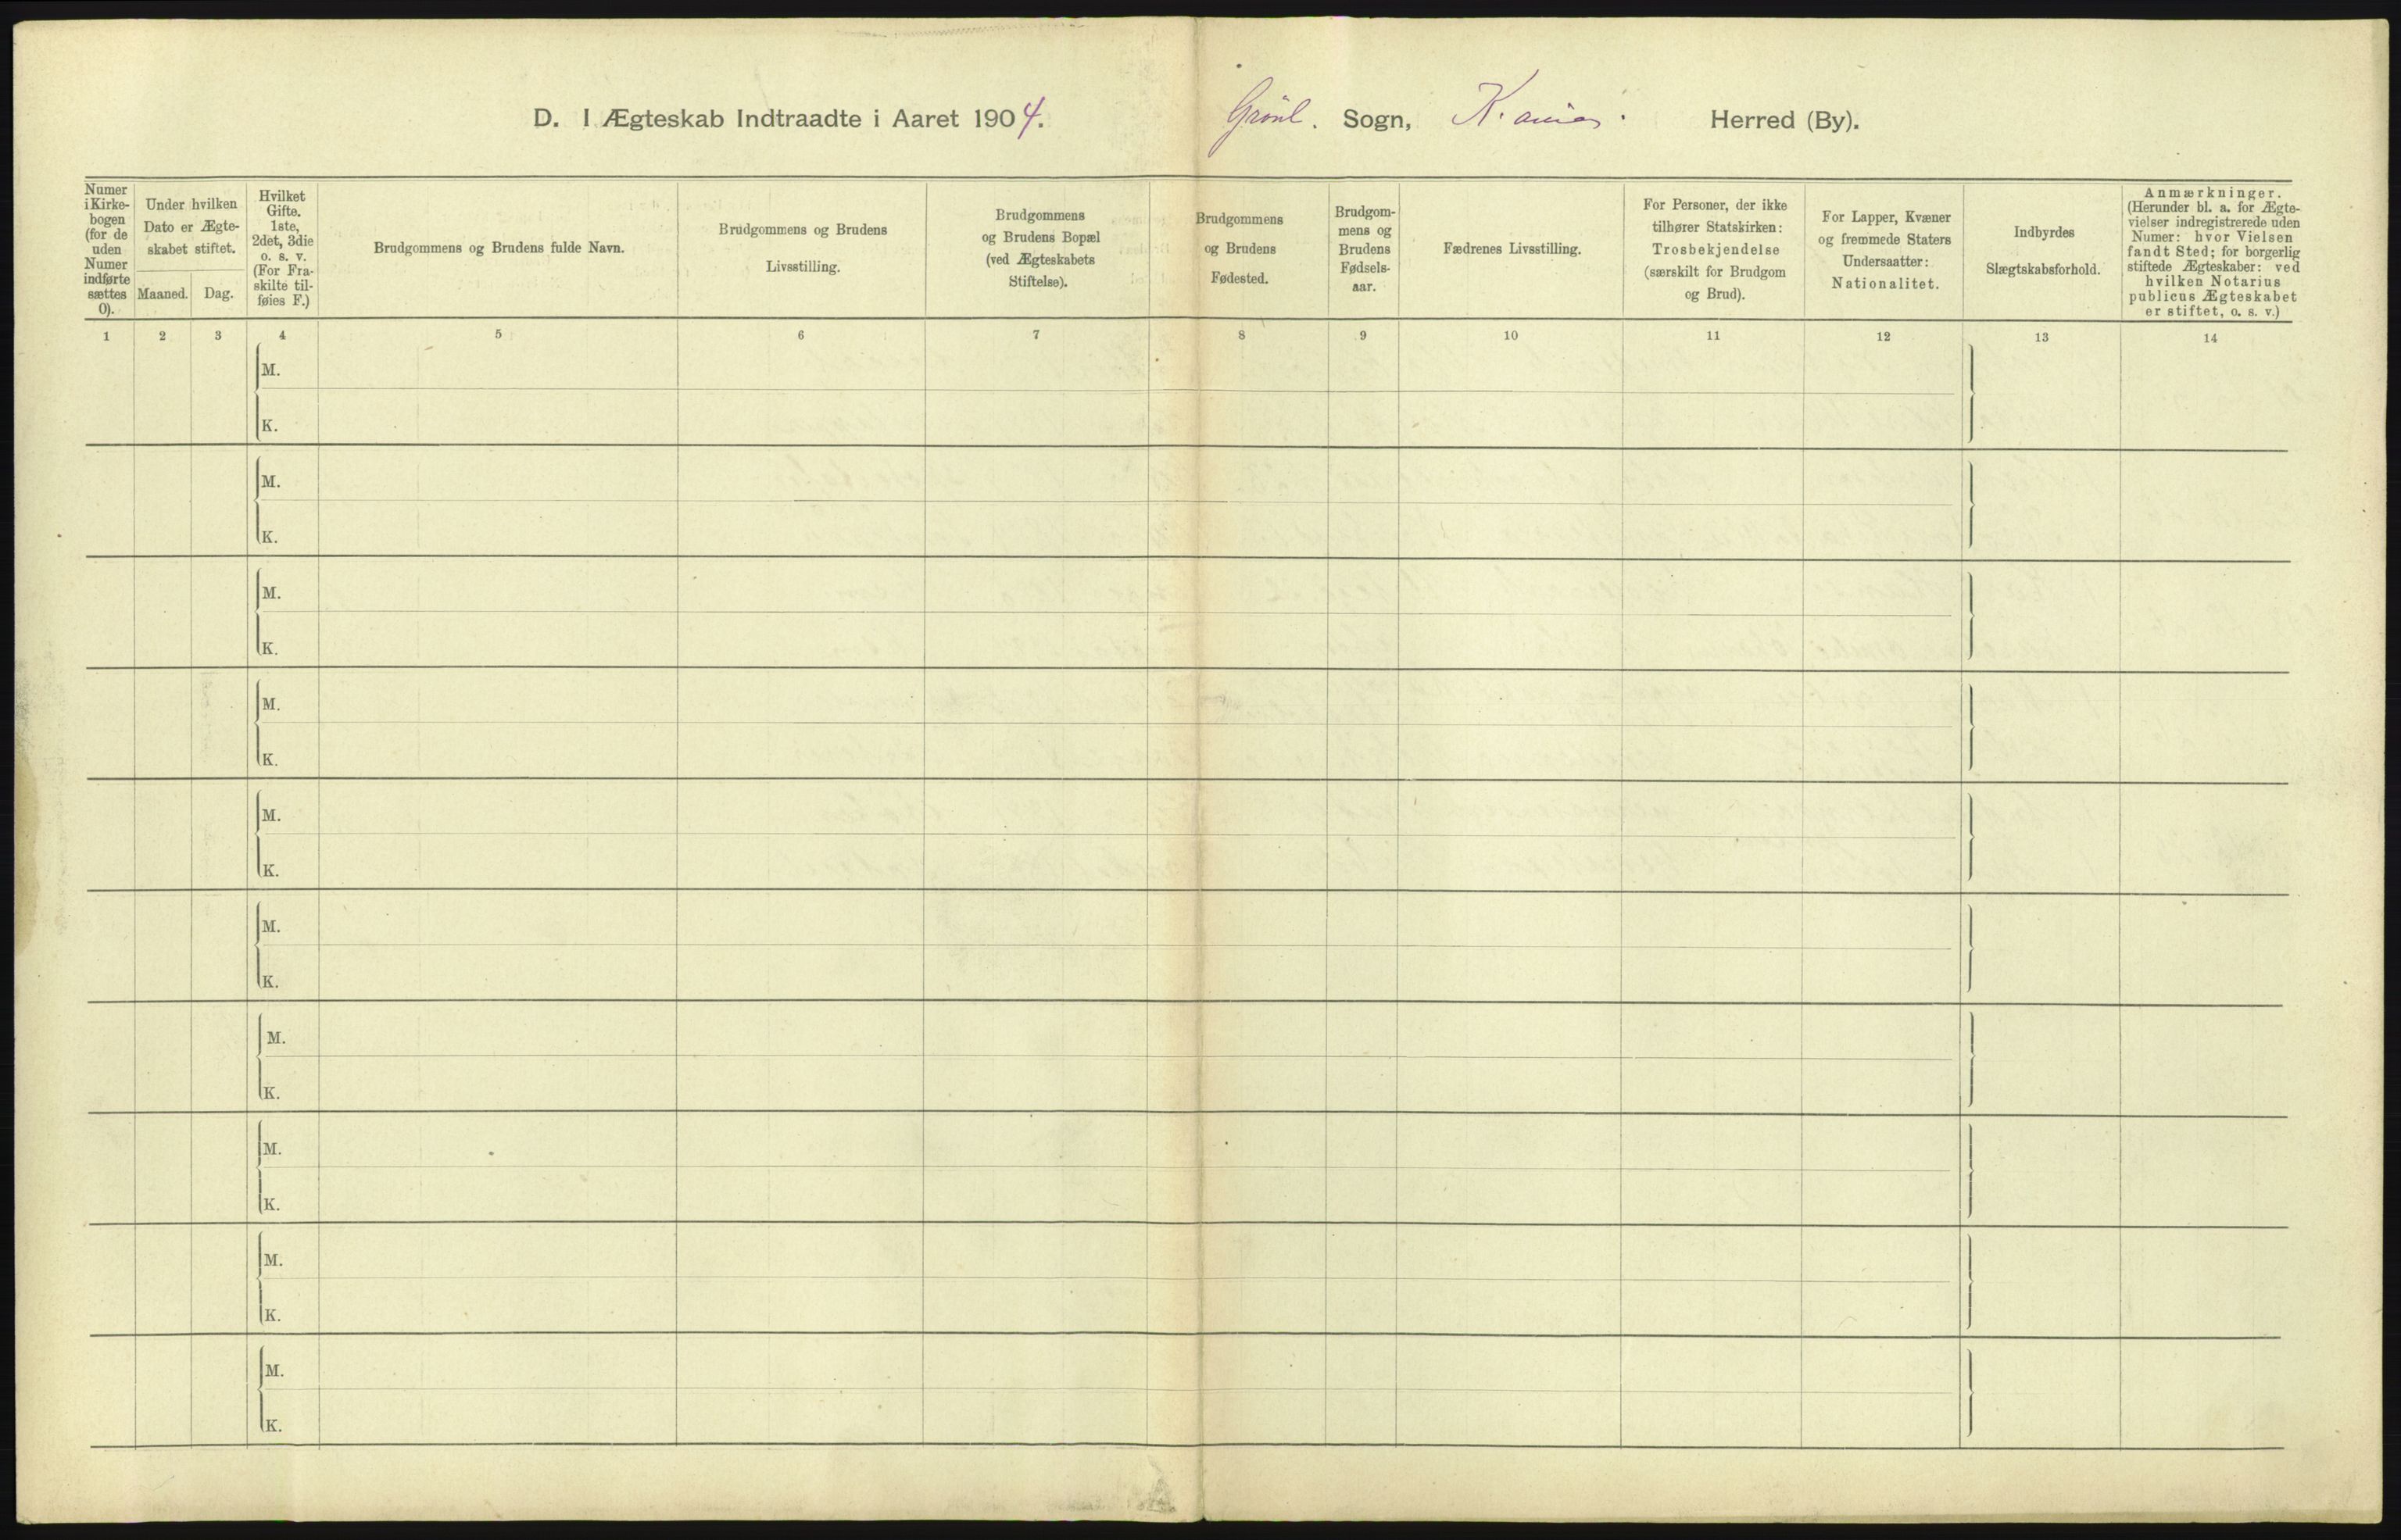 D. I Ægteskab Indtraadte i Aaret 1904. Grönl. Sogn, Herred (By).
Numer i Kirke-
bogen
(for de
uden
Numer
indførte
sættes
0).
Under hvilken
Dato er Ægte-
skabet stiftet.
Maaned. Dag.
Hvilket
Gifte.
1ste,
2det, 3die
o. s. v.
(For Fra-
skilte til-
føies F.)
Brudgommens og Brudens fulde Navn.
Brudgommens og Brudens
Livsstilling.
Brudgommens
og Brudens Bopæl
(ved Ægteskabets
Stiftelse).
Brudgommens
og Brudens
Fødested.
Brudgom-
mens og
Brudens
Fødsels-
aar.
Fædrenes Livsstilling.
For Personer, der ikke
tilhører Statskirken:
Trosbekjendelse
(særskilt for Brudgom
og Brud).
For Lapper, Kvæner
og fremmede Staters
Undersaatter:
Nationalitet.
Indbyrdes
Slægtskabsforhold.
Anmærkninger.
(Herunder bl. a. for Ægte-
vielser indregistrerede uden
Numer: hvor Vielsen
fandt Sted; for borgerlig
stiftede Ægteskaber: ved
hvilken Notarius
publicus Ægteskabet
er stiftet, o. s. v.)
1 2 3 4 5 6 7 8 9 10 11 12 13 14
M.
K.
M.
K.
M.
K.
M.
K.
M.
K.
M.
K.
M.
K.
M.
K.
M.
K.
M.
K.